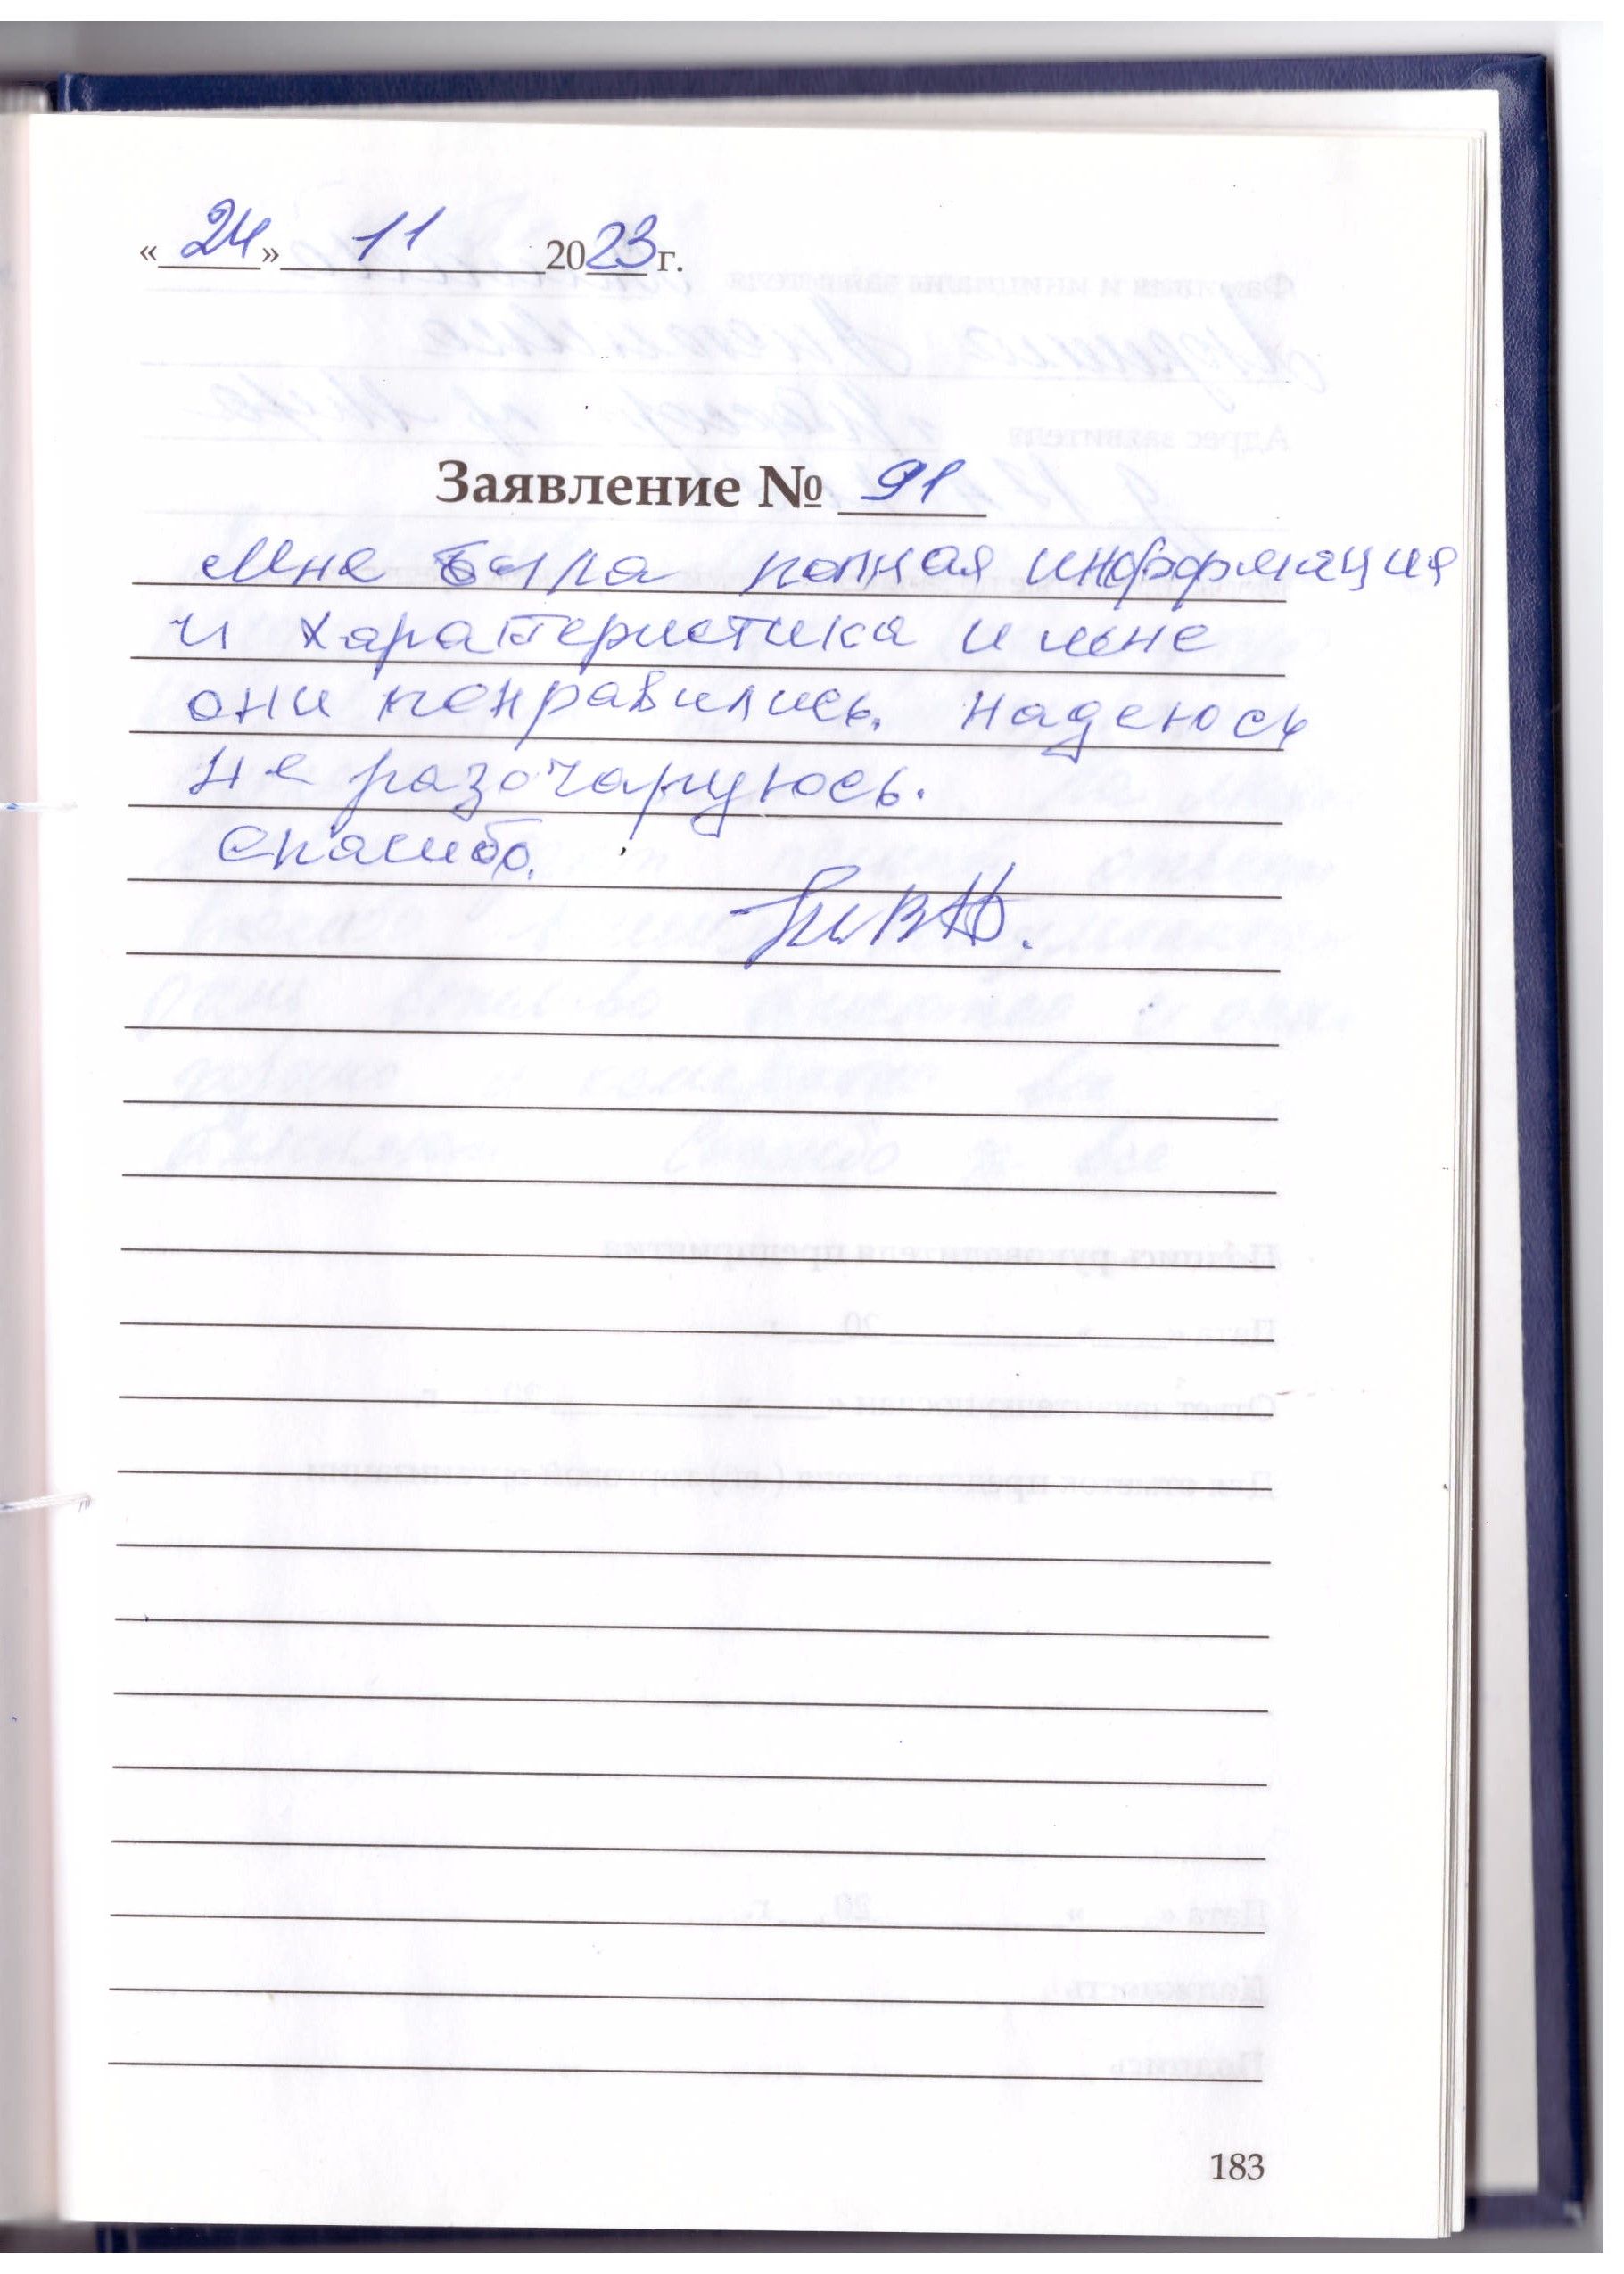 «24» 11 2023 г.
Заявление № 91
Мне была полная информация
и характеристика и мне
они понравились. Надеюсь
не разочаруюсь.
Спасибо.
183